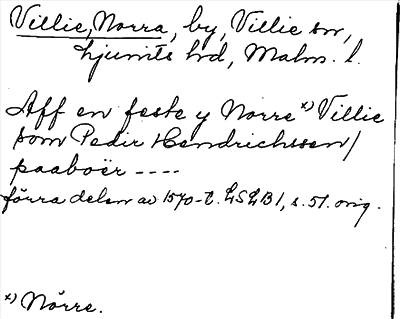 Villie, Norra, by, Villie sn,
Ljunits hd, Malm. l.
Aff en feste y Norre x) Villie
som Peder Hendrichssen /
paaboer ----
förra delen av 1570-t. LSLB1, s. 51. orig.
x) Nörre.